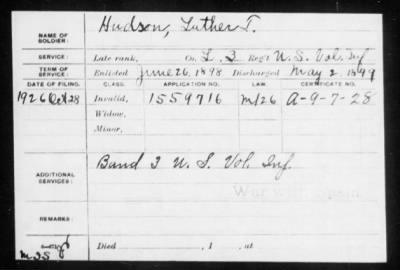 NAME OF SOLDIER: Hudson, Luther T.
SERVICE: Late rank, Co. L. 3 Reg't U. S. Vol. Inf
TERM OF SERVICE: Enlisted June 26, 1898 Discharged May 2, 1899
DATE OF FILING. CLASS. APPLICATION NO. LAW. CERTIFICATE NO.
1926 Oct 28 Invalid, 1559716 m/26 A-9-7-28
Widow,
Minor,
ADDITIONAL SERVICES: Band 3 U. S. Vol. Inf.
War with Spain
REMARKS:
Died , 1 , at